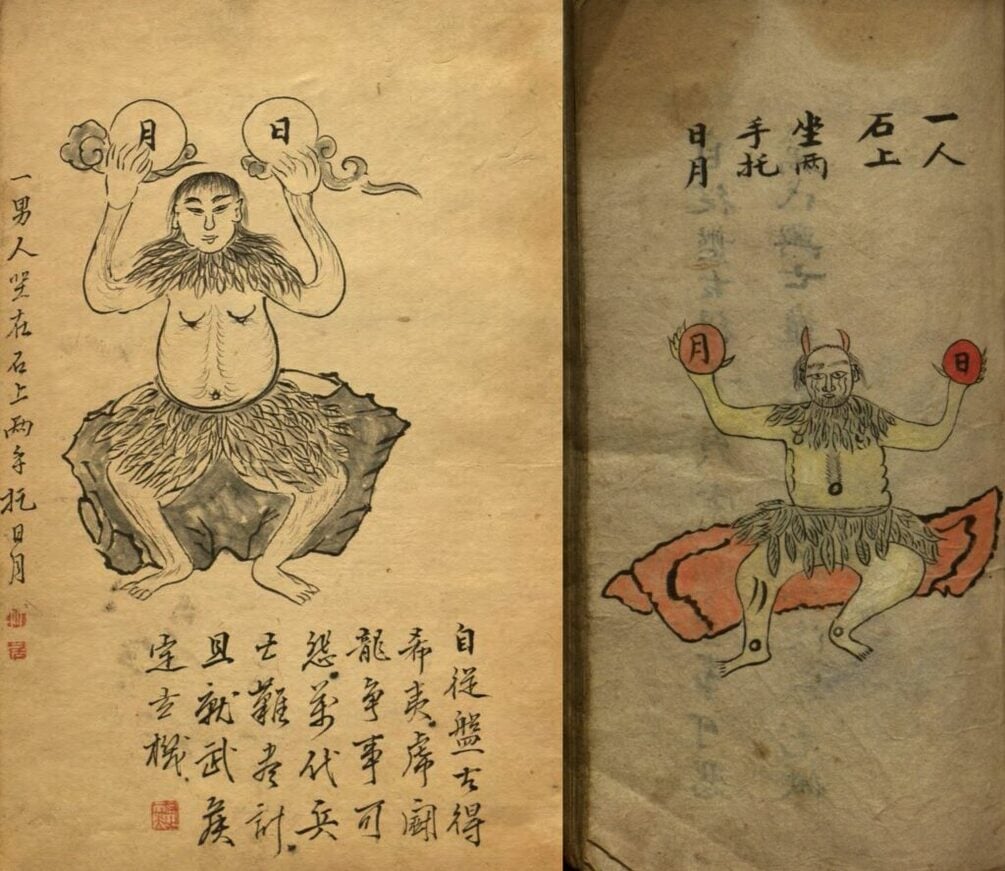 月
日
一男人坐在石上两手托日月
自從盤古得
希夷虎鬪
龍爭事可
悲萬代兴
亡難尽計
且就武侯
定玄機
一人
石上
坐两
手托
日月
月
日